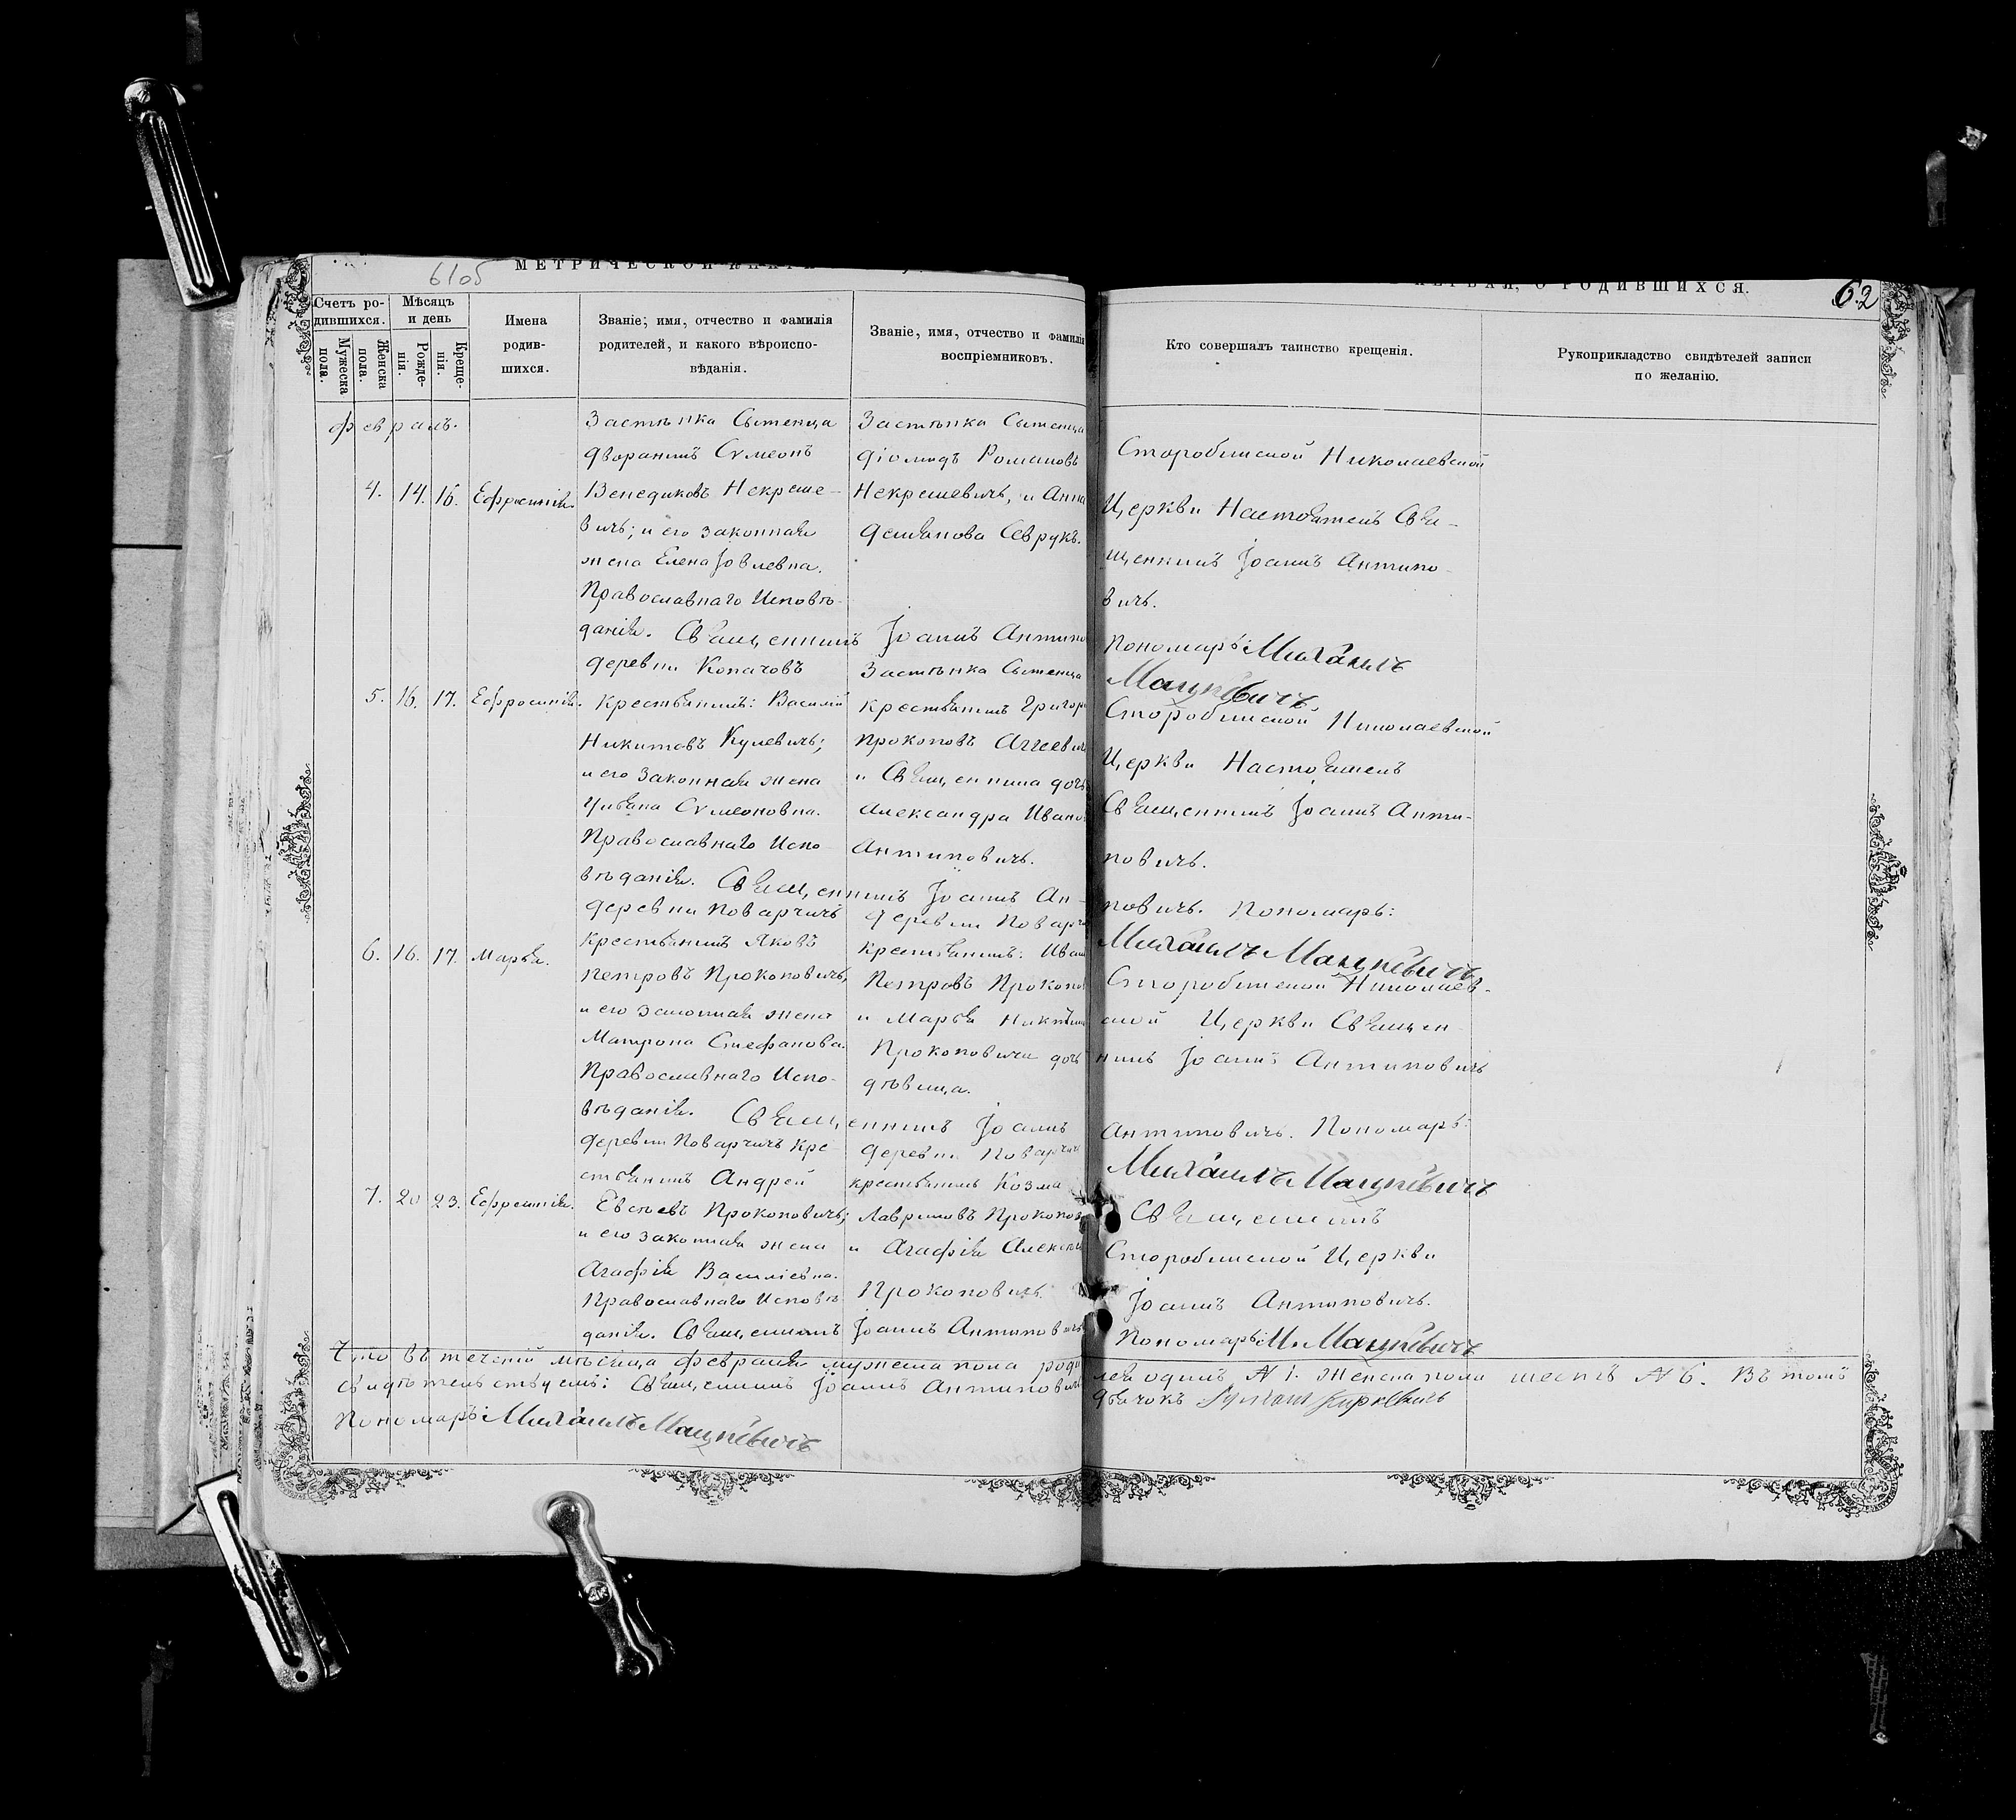 61об
МЕТРИЧЕСКОЙ
ПЕРВАЯ, О РОДИВШИХСЯ.
62
Счетъ ро-
дившихся.
Мужеска
пола.
Женска
пола.
Мѣсяцъ
и день
Рожде-
нія.
Креще-
нія.
Имена
родив-
шихся.
Званіе, имя, отчество и фамилія
родителей, и какого вѣроиспо-
вѣданія.
Званіе, имя, отчество и фамилія
воспріемниковъ.
Кто совершалъ таинство крещенія.
Рукоприкладство свидѣтелей записи
по желанію.
февраль.
4. 14. 16. Ефросинія.
Застѣнка Сытенца
дворанинъ Сѵмеонъ
Венедиковъ Некраше-
вичъ; и его законная
жена Елена Іовлевна.
Православнаго Исповѣ-
данія. Священникъ Іоаннъ Антипо
Застѣнка Сытенца
діомидъ Романовъ
Некрашевичъ, и Анна
демьянова Севрукъ.
Старобинской Николаевской
Церкви Настоятель Свя-
щенникъ Іоаннъ Антипо-
вичъ.
Пономарь: Михаилъ
Мацкевичъ
5. 16. 17. Ефросинія.
деревни Копачовъ
крестьянинъ: Василій
Никитовъ Кулевичъ;
и его законная жена
Ульяна Сѵмеоновна.
Православнаго Испо-
вѣданія. Священникъ Іоаннъ Ан-
Застѣнка Сытенца
крестьянинъ Григор
Прокоповъ Аггеевичъ
и Священника дочь
Александра Ивано
Антиповичъ.
Старобинской Николаевской
Церкви Настоятель
Священникъ Іоаннъ Анти-
повичъ.
повичъ. Пономарь:
Михаилъ Мацкевичъ
6. 16. 17. Марья.
деревни Поварчичъ
крестьянинъ Яковъ
Петровъ Прокоповичъ;
и его законная жена
Матрона Стефанова.
Православнаго Испо-
вѣданія. Священникъ Іоаннъ
деревни Поварчи
крестьянинъ: Иван
Петровъ Прокопо
и Марья Никитина
Прокоповича дочь
дѣвица.
Старобинской Николаев-
ской Церкви Священ-
никъ Іоаннъ Антиповичъ
Антиповичъ. Пономарь:
Михаилъ Мацкевичъ
7. 20 23. Ефросинія.
деревни Поварчичъ кре-
стьянинъ Андрей
Евсѣевъ Прокоповичъ;
и его законная жена
Агафія Василіевна.
Православнаго Исповѣ-
данія. Священникъ Іоаннъ Антиповичъ
деревни Поварчичъ
крестьянинъ Козма
Лавриновъ Прокопов
и Агафія Алексан
Прокоповичъ.
Священникъ
Старобинской Церкви
Іоаннъ Антиповичъ.
Пономарь: М. Мацкевичъ
Что въ теченіи мѣсяца февраля мужеска пола роди лся одинъ № 1. Женска пола шесть № 6. Въ томъ
свидѣтельствуемъ: Священникъ Іоаннъ Антиповичъ
Дьячокъ
Пономарь: Михаилъ Мацкевичъ